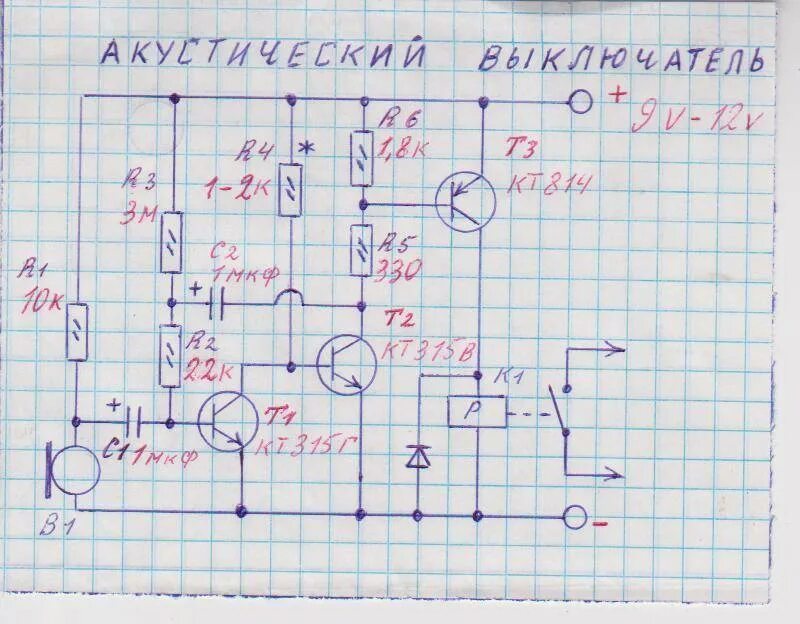 АКУСТИЧЕСКИЙ ВЫКЛЮЧАТЕЛЬ
+
9V-12V
R6
1,8К
R4 *
1-2К
T3
КТ814
R3
3М
C2
+ 1мкф
R5
330
R1
10К
T2
КТ315В
R2
22К
K1
P
+
C1 1мкф
T1
КТ315Г
B1
-